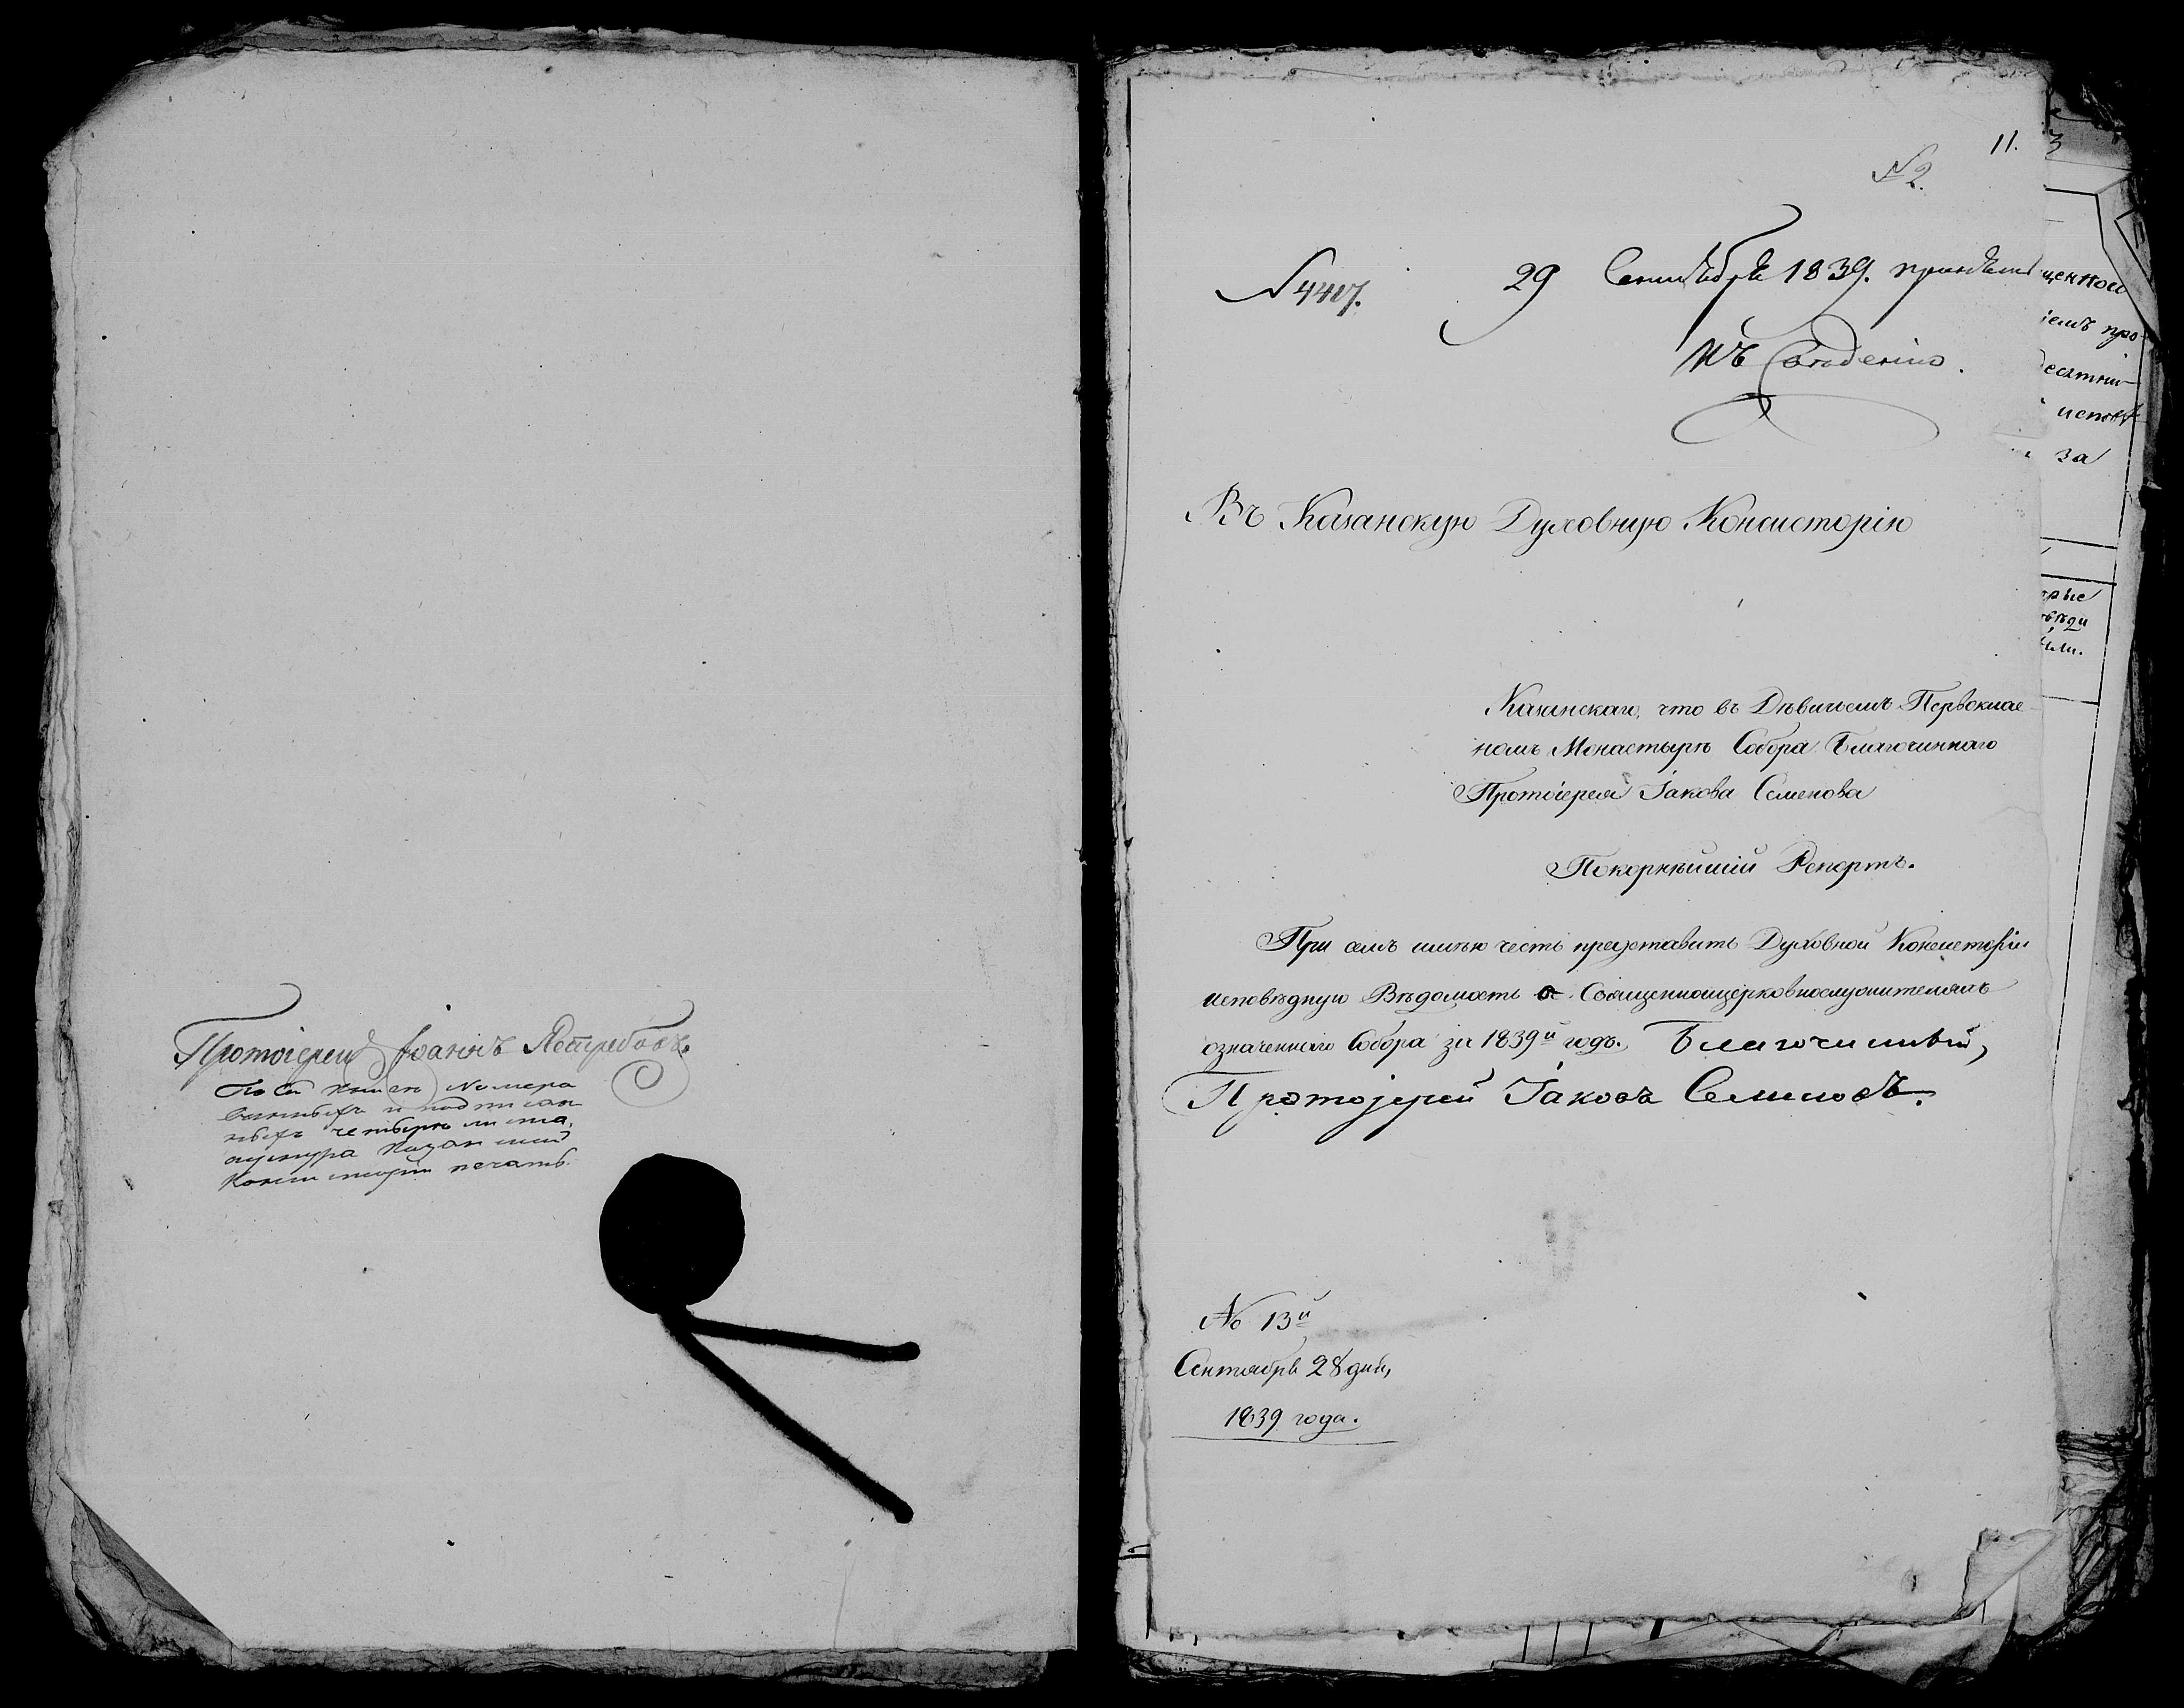 Протоіерей Іоаннъ Ястребовъ.
По сей книгѣ нумеро
ванныхъ и подписан
ныхъ четыре листа,
у шнура Казанской
Консисторіи печать.
11.
№ 2.
№ 4417.
29 Сентября 1839.
Къ Сведенію.
Въ Казанскую Духовную Консисторію
Казанскаго, что въ Дѣвичьемъ Первоклас-
номъ Монастырѣ Собора Благочиннаго
Протоіерея Іакова Семенова
Покорнѣйшій Репортъ.
При семъ имѣю честь представить Духовной Консисторіи
исповѣдную Вѣдомость о Священноцерковнослужителяхъ
означеннаго Собора за 1839й годъ. Благочинный,
Протоіерей Іаковъ Семеновъ.
№ 13й
Сентября 28 дня,
1839 года.